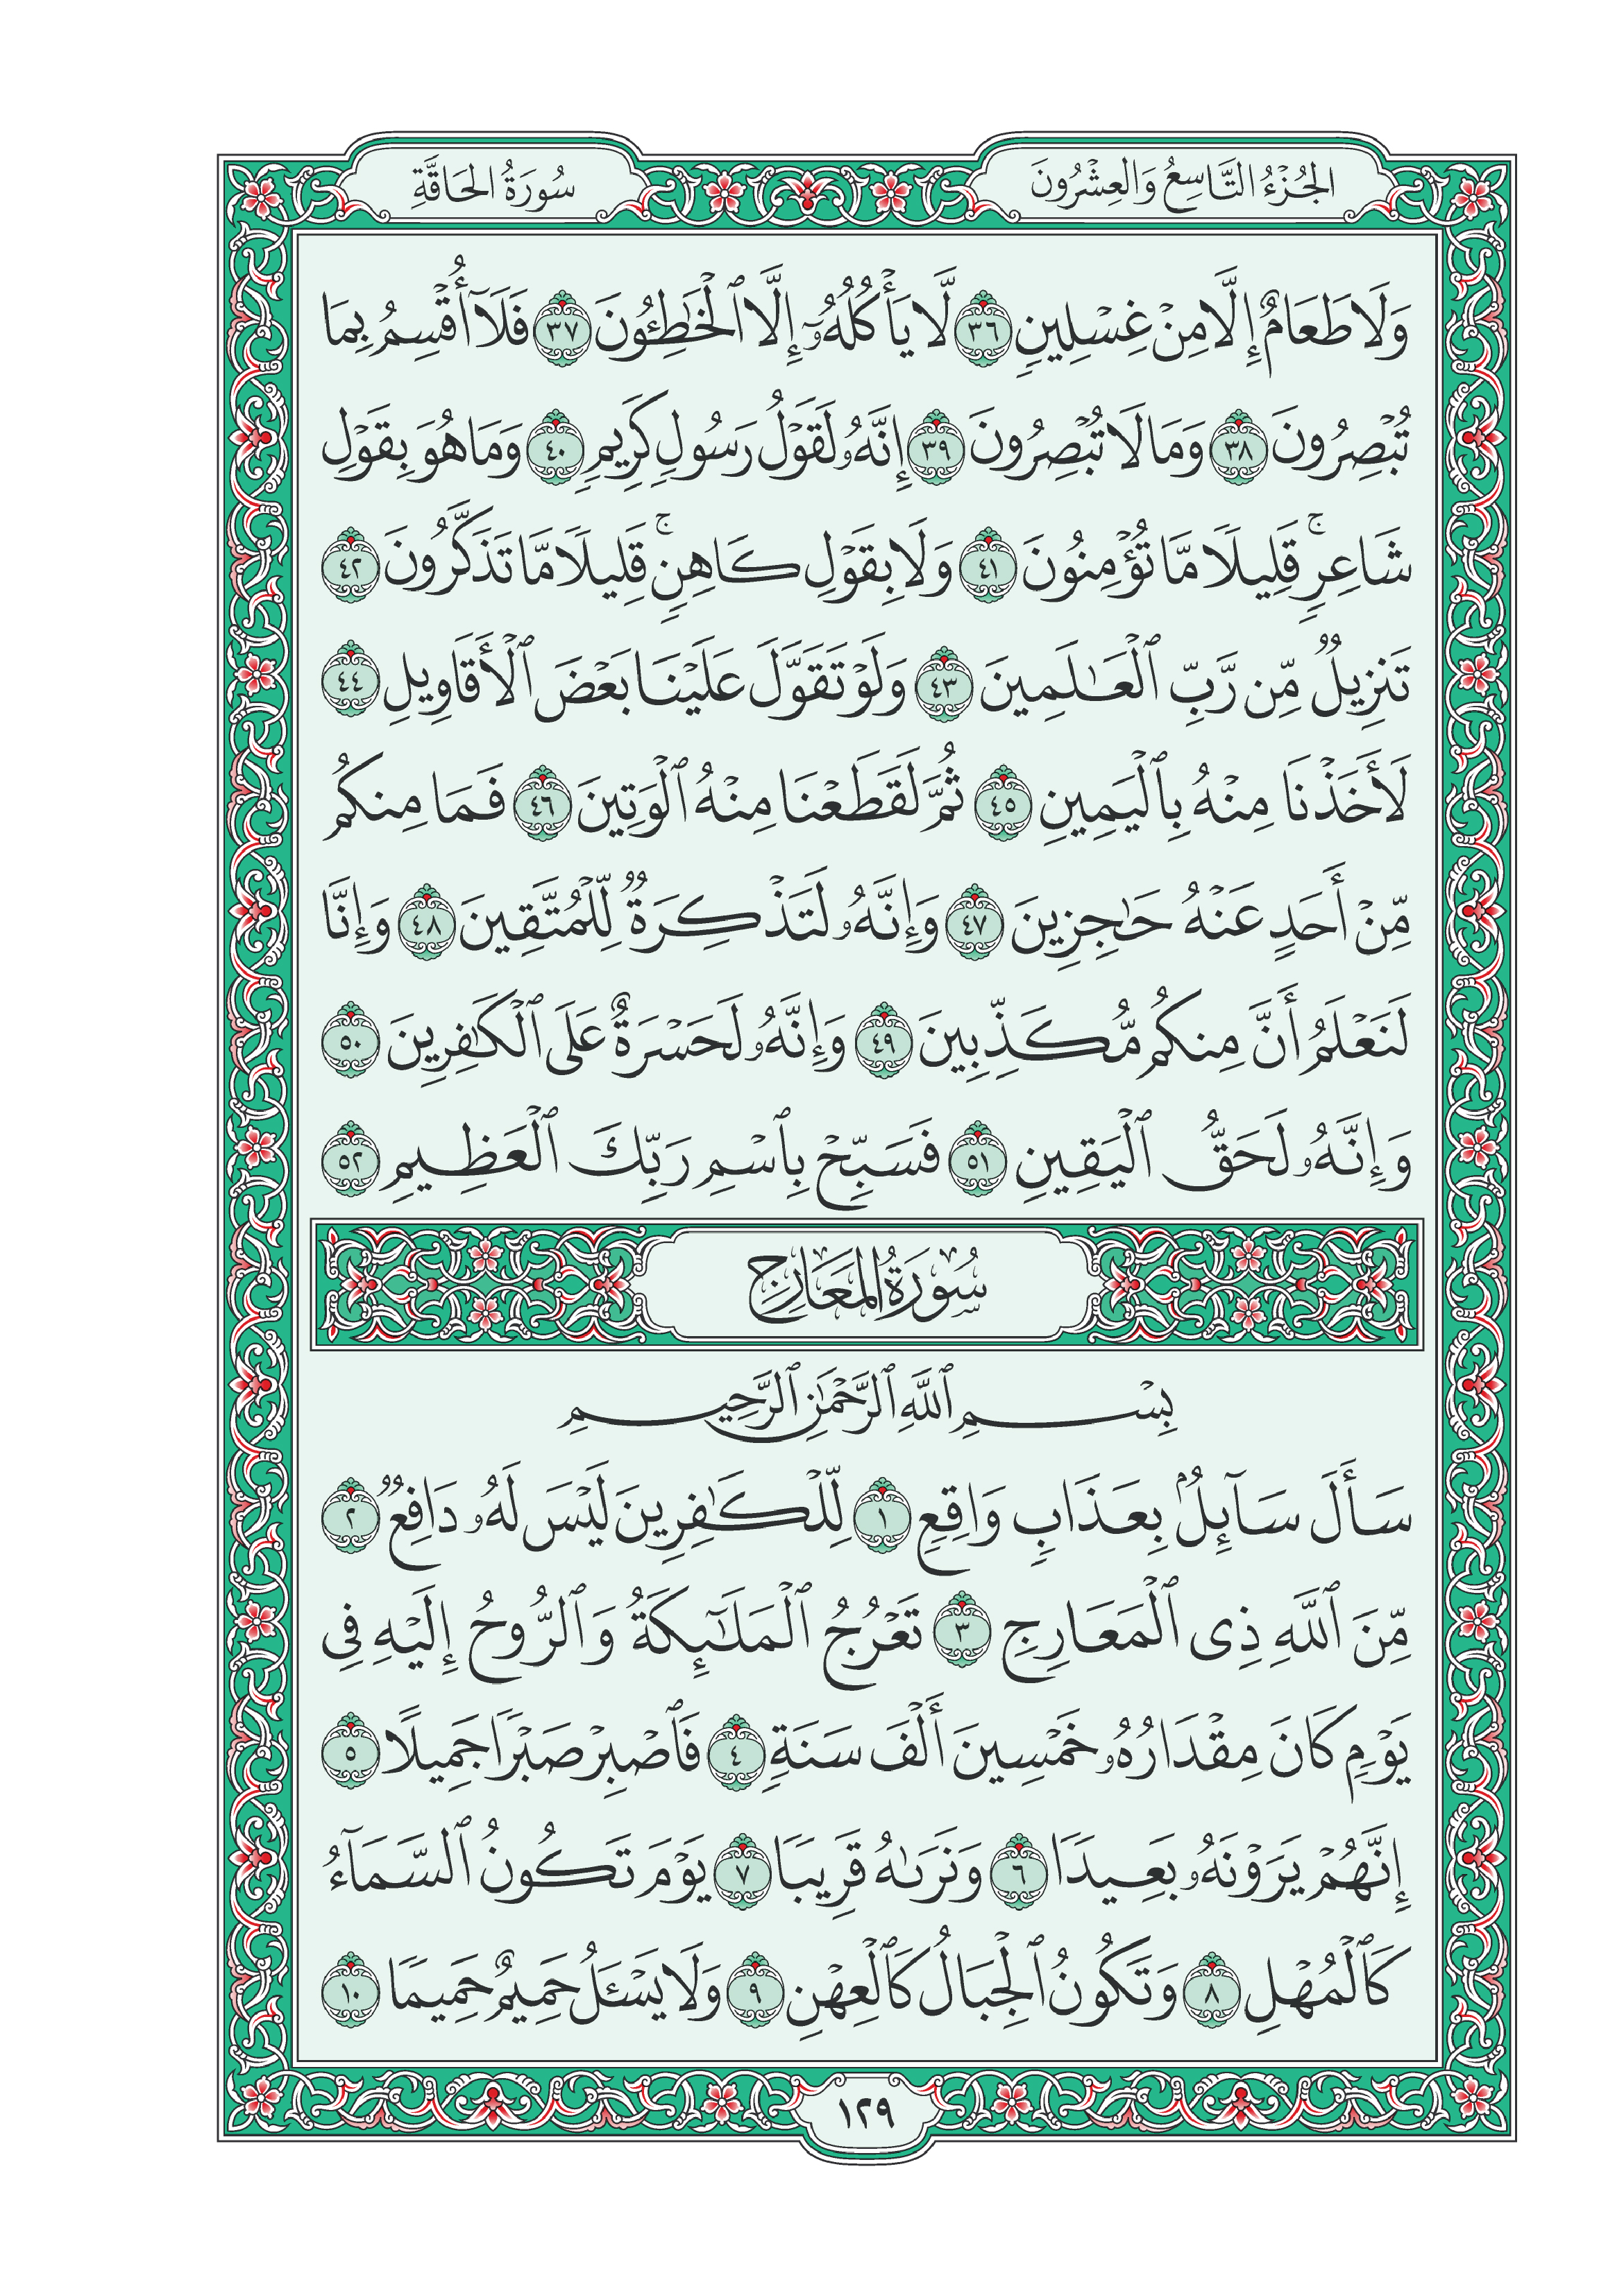 الجُزْءُ التَّاسِعُ وَالعِشْرُونَ
سُورَةُ الحَاقَّةِ
وَلَا طَعَامٌ إِلَّا مِنْ غِسْلِينٍ ٣٦ لَّا يَأْكُلُهُۥٓ إِلَّا ٱلْخَٰطِـُٔونَ ٣٧ فَلَآ أُقْسِمُ بِمَا
تُبْصِرُونَ ٣٨ وَمَا لَا تُبْصِرُونَ ٣٩ إِنَّهُۥ لَقَوْلُ رَسُولٍ كَرِيمٍ ٤٠ وَمَا هُوَ بِقَوْلِ
شَاعِرٍۚ قَلِيلًا مَّا تُؤْمِنُونَ ٤١ وَلَا بِقَوْلِ كَاهِنٍۚ قَلِيلًا مَّا تَذَكَّرُونَ ٤٢
تَنزِيلٌ مِّن رَّبِّ ٱلْعَٰلَمِينَ ٤٣ وَلَوْ تَقَوَّلَ عَلَيْنَا بَعْضَ ٱلْأَقَاوِيلِ ٤٤
لَأَخَذْنَا مِنْهُ بِٱلْيَمِينِ ٤٥ ثُمَّ لَقَطَعْنَا مِنْهُ ٱلْوَتِينَ ٤٦ فَمَا مِنكُم
مِّنْ أَحَدٍ عَنْهُ حَٰجِزِينَ ٤٧ وَإِنَّهُۥ لَتَذْكِرَةٌ لِّلْمُتَّقِينَ ٤٨ وَإِنَّا
لَنَعْلَمُ أَنَّ مِنكُم مُّكَذِّبِينَ ٤٩ وَإِنَّهُۥ لَحَسْرَةٌ عَلَى ٱلْكَٰفِرِينَ ٥٠
وَإِنَّهُۥ لَحَقُّ ٱلْيَقِينِ ٥١ فَسَبِّحْ بِٱسْمِ رَبِّكَ ٱلْعَظِيمِ ٥٢
سُورَةُ المَعَارِجِ
بِسْمِ ٱللَّهِ ٱلرَّحْمَٰنِ ٱلرَّحِيمِ
سَأَلَ سَآئِلٌۢ بِعَذَابٍ وَاقِعٍ ١ لِّلْكَٰفِرِينَ لَيْسَ لَهُۥ دَافِعٌ ٢
مِّنَ ٱللَّهِ ذِى ٱلْمَعَارِجِ ٣ تَعْرُجُ ٱلْمَلَٰٓئِكَةُ وَٱلرُّوحُ إِلَيْهِ فِى
يَوْمٍ كَانَ مِقْدَارُهُۥ خَمْسِينَ أَلْفَ سَنَةٍ ٤ فَٱصْبِرْ صَبْرًا جَمِيلًا ٥
إِنَّهُمْ يَرَوْنَهُۥ بَعِيدًا ٦ وَنَرَىٰهُ قَرِيبًا ٧ يَوْمَ تَكُونُ ٱلسَّمَآءُ
كَٱلْمُهْلِ ٨ وَتَكُونُ ٱلْجِبَالُ كَٱلْعِهْنِ ٩ وَلَا يَسْـَٔلُ حَمِيمٌ حَمِيمًا ١٠
١٢٩